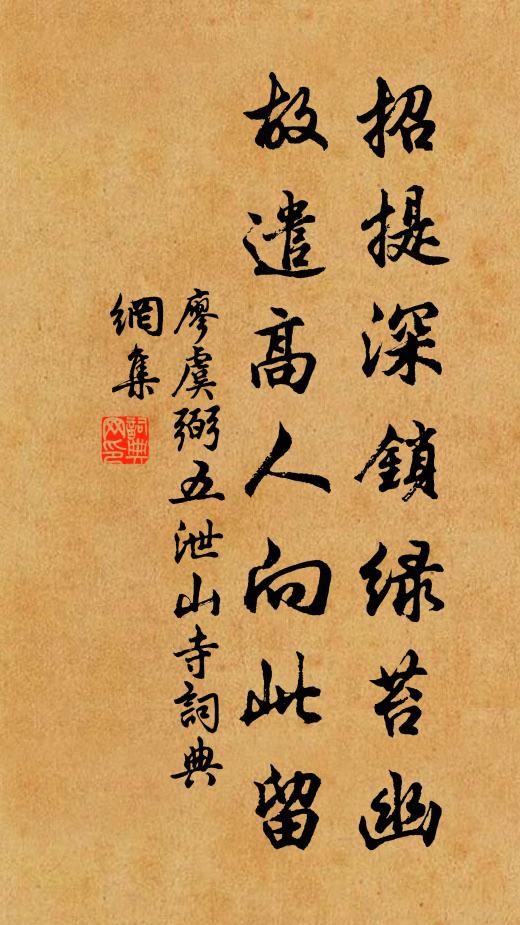 招提深鎖绿苔幽
故遣高人向此留
廖虞弼五泄山寺詞典
網集
詞典网印